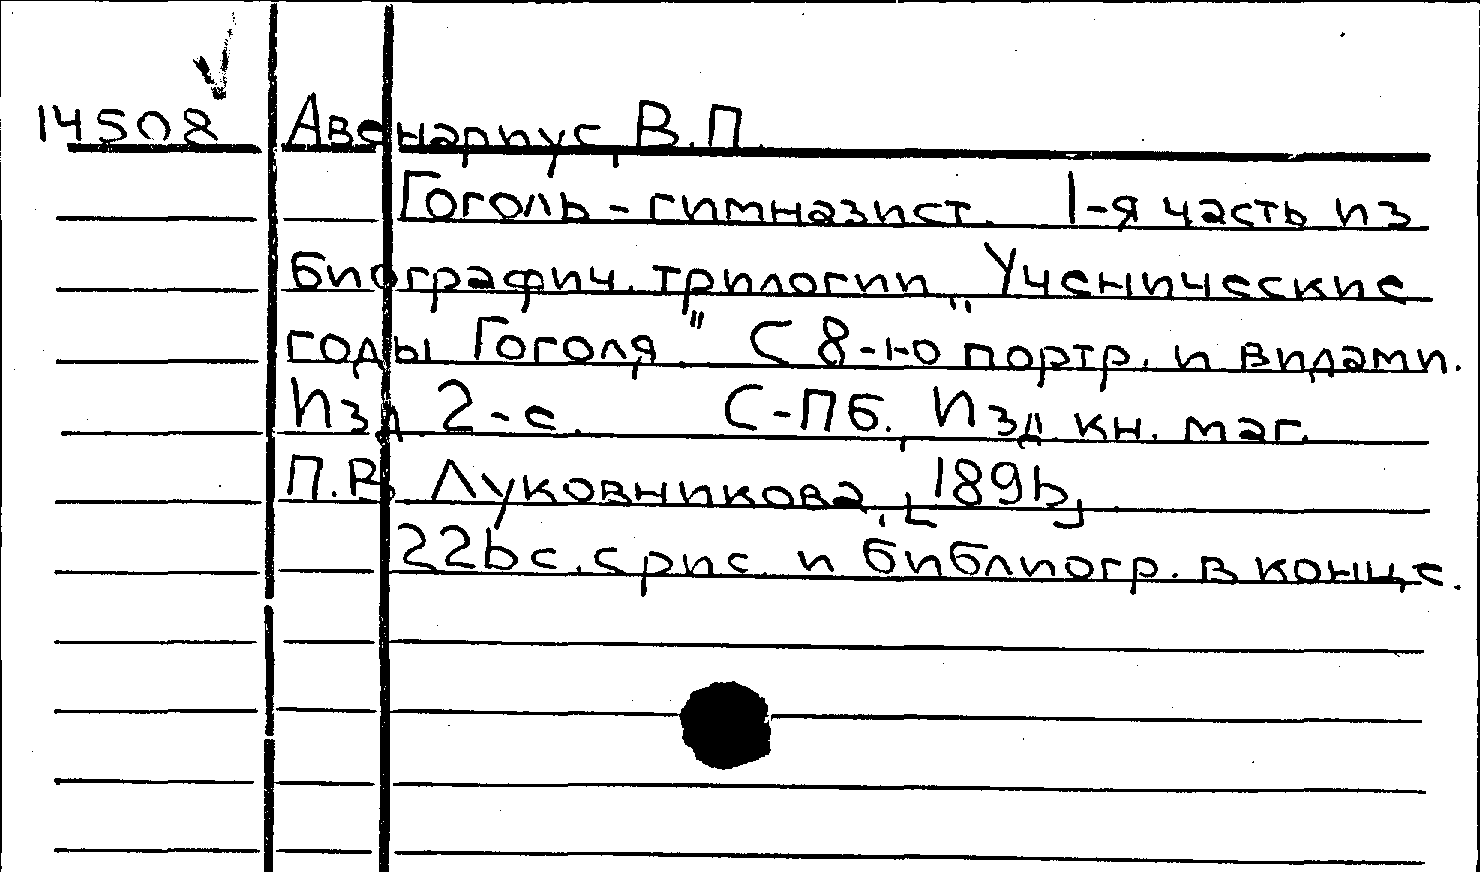 14508 Авенариус, В.П.
Гоголь-гимназист. 1-я часть из
биографич. трилогии „Ученические
годы Гоголя" С 8-ю портр. и видами.
Изд 2-е. С-Пб., Изд. кн. маг.
П.В. Луковникова, [1896]
226 с. с рис. и библиогр. в конце.